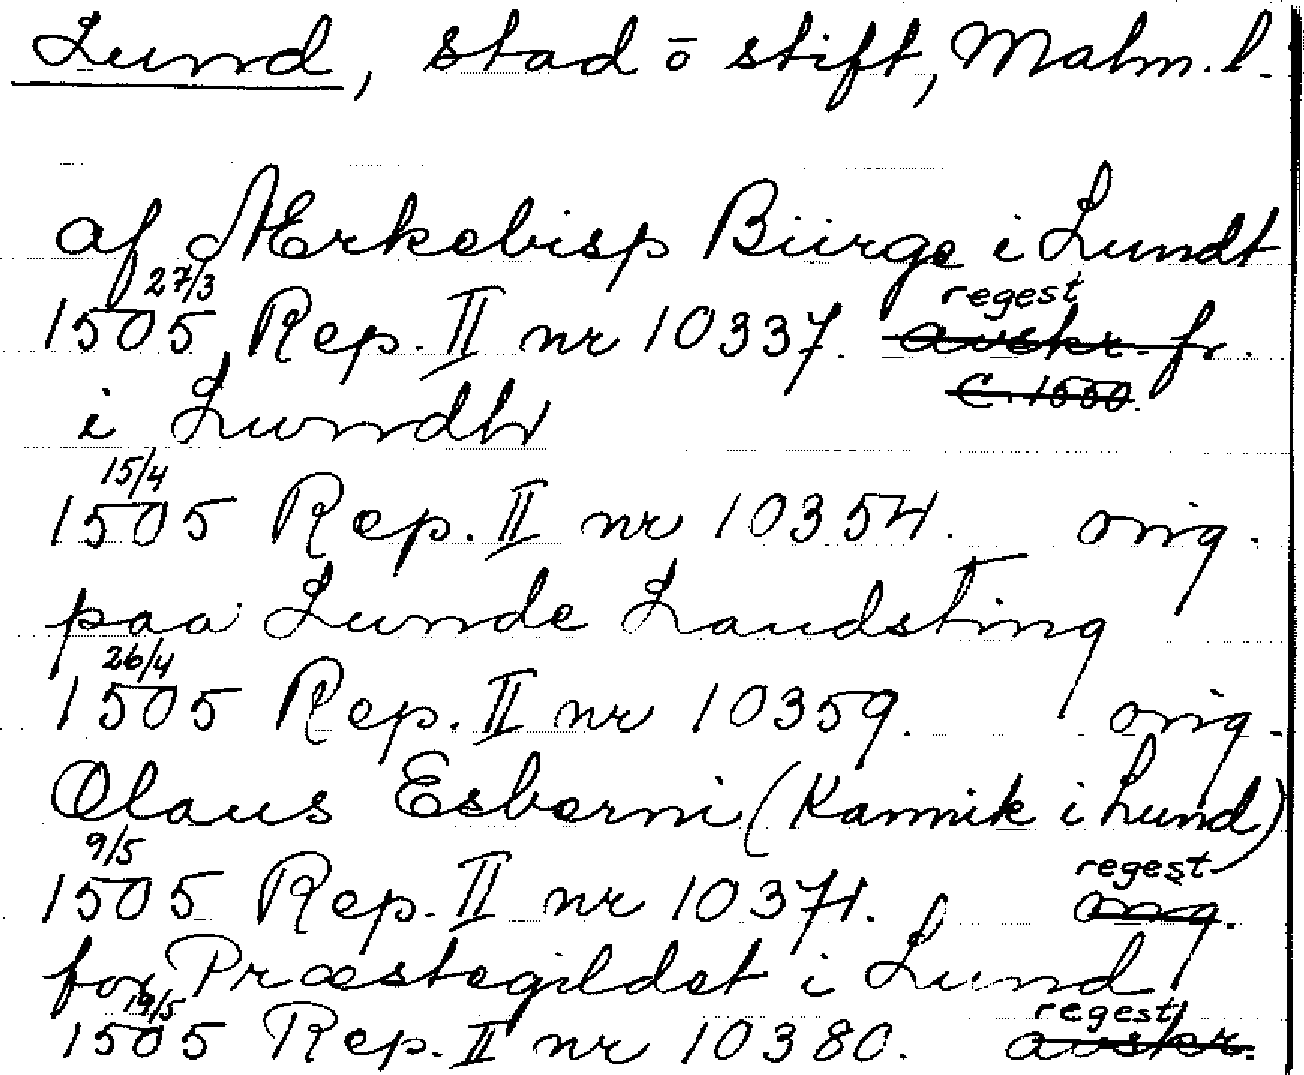 Lund, stad ō stift, Malm. l.
af Ærkebisp Biirge i Lundt
27/3 regest
1505 Rep. II nr 10337. avskr. fr.
c. 1550.
i Lundh
15/4
1505 Rep. II nr 10354. orig.
paa Lunde Landsting
26/4
1505 Rep. II nr 10359. orig.
Olaus Esberni (Kannik i Lund)
9/5 regest
1505 Rep. II nr 10371. orig.
for Præstegildet i Lund
19/5 regest
1505 Rep. II nr 10380. avskr.